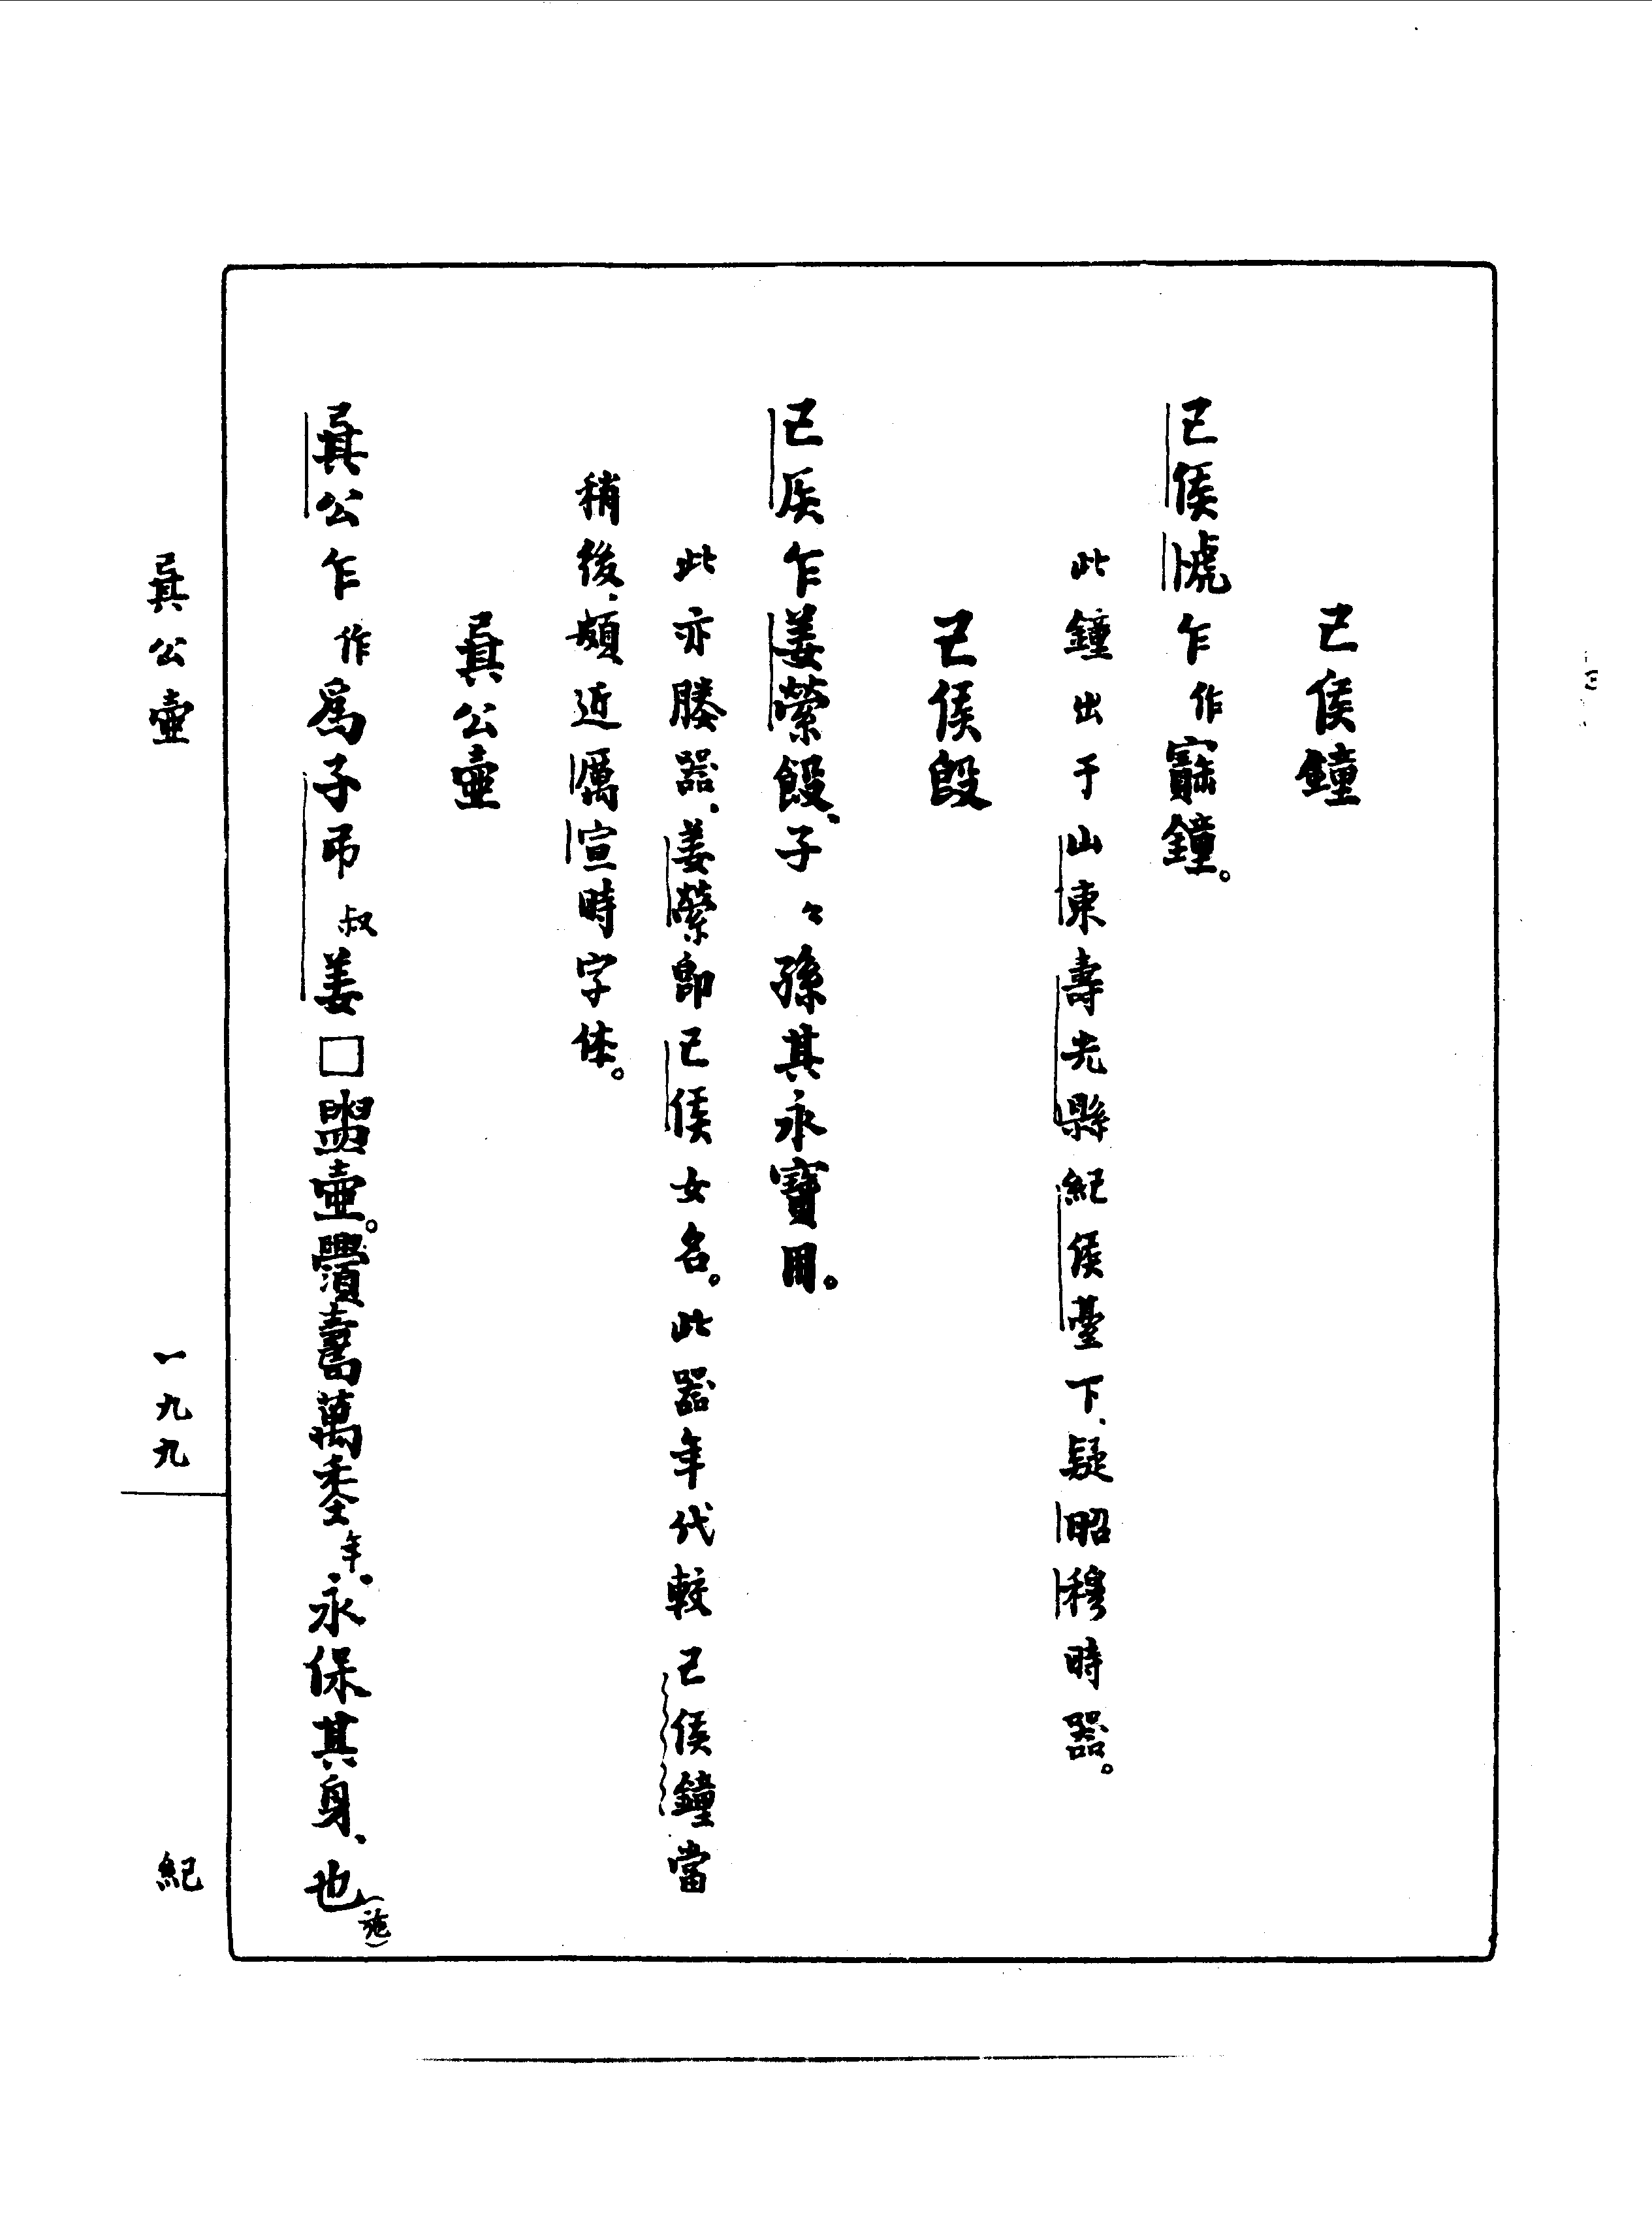 己侯鐘
己侯𧇭乍作寶鐘。
此鐘出于山東壽光縣紀侯臺下、疑昭穆時器。
己侯𣪘
己矦乍姜縈𣪘、子〻孫其永寶用。
此亦媵器、姜縈即己侯女名。此器年代較己侯鐘當
稍後、頗近厲宣時字体。
㠱公壺
㠱公乍作爲子弔叔姜□盥壺。萬年、永保其身、也(施)
㠱公壺
一九九
紀